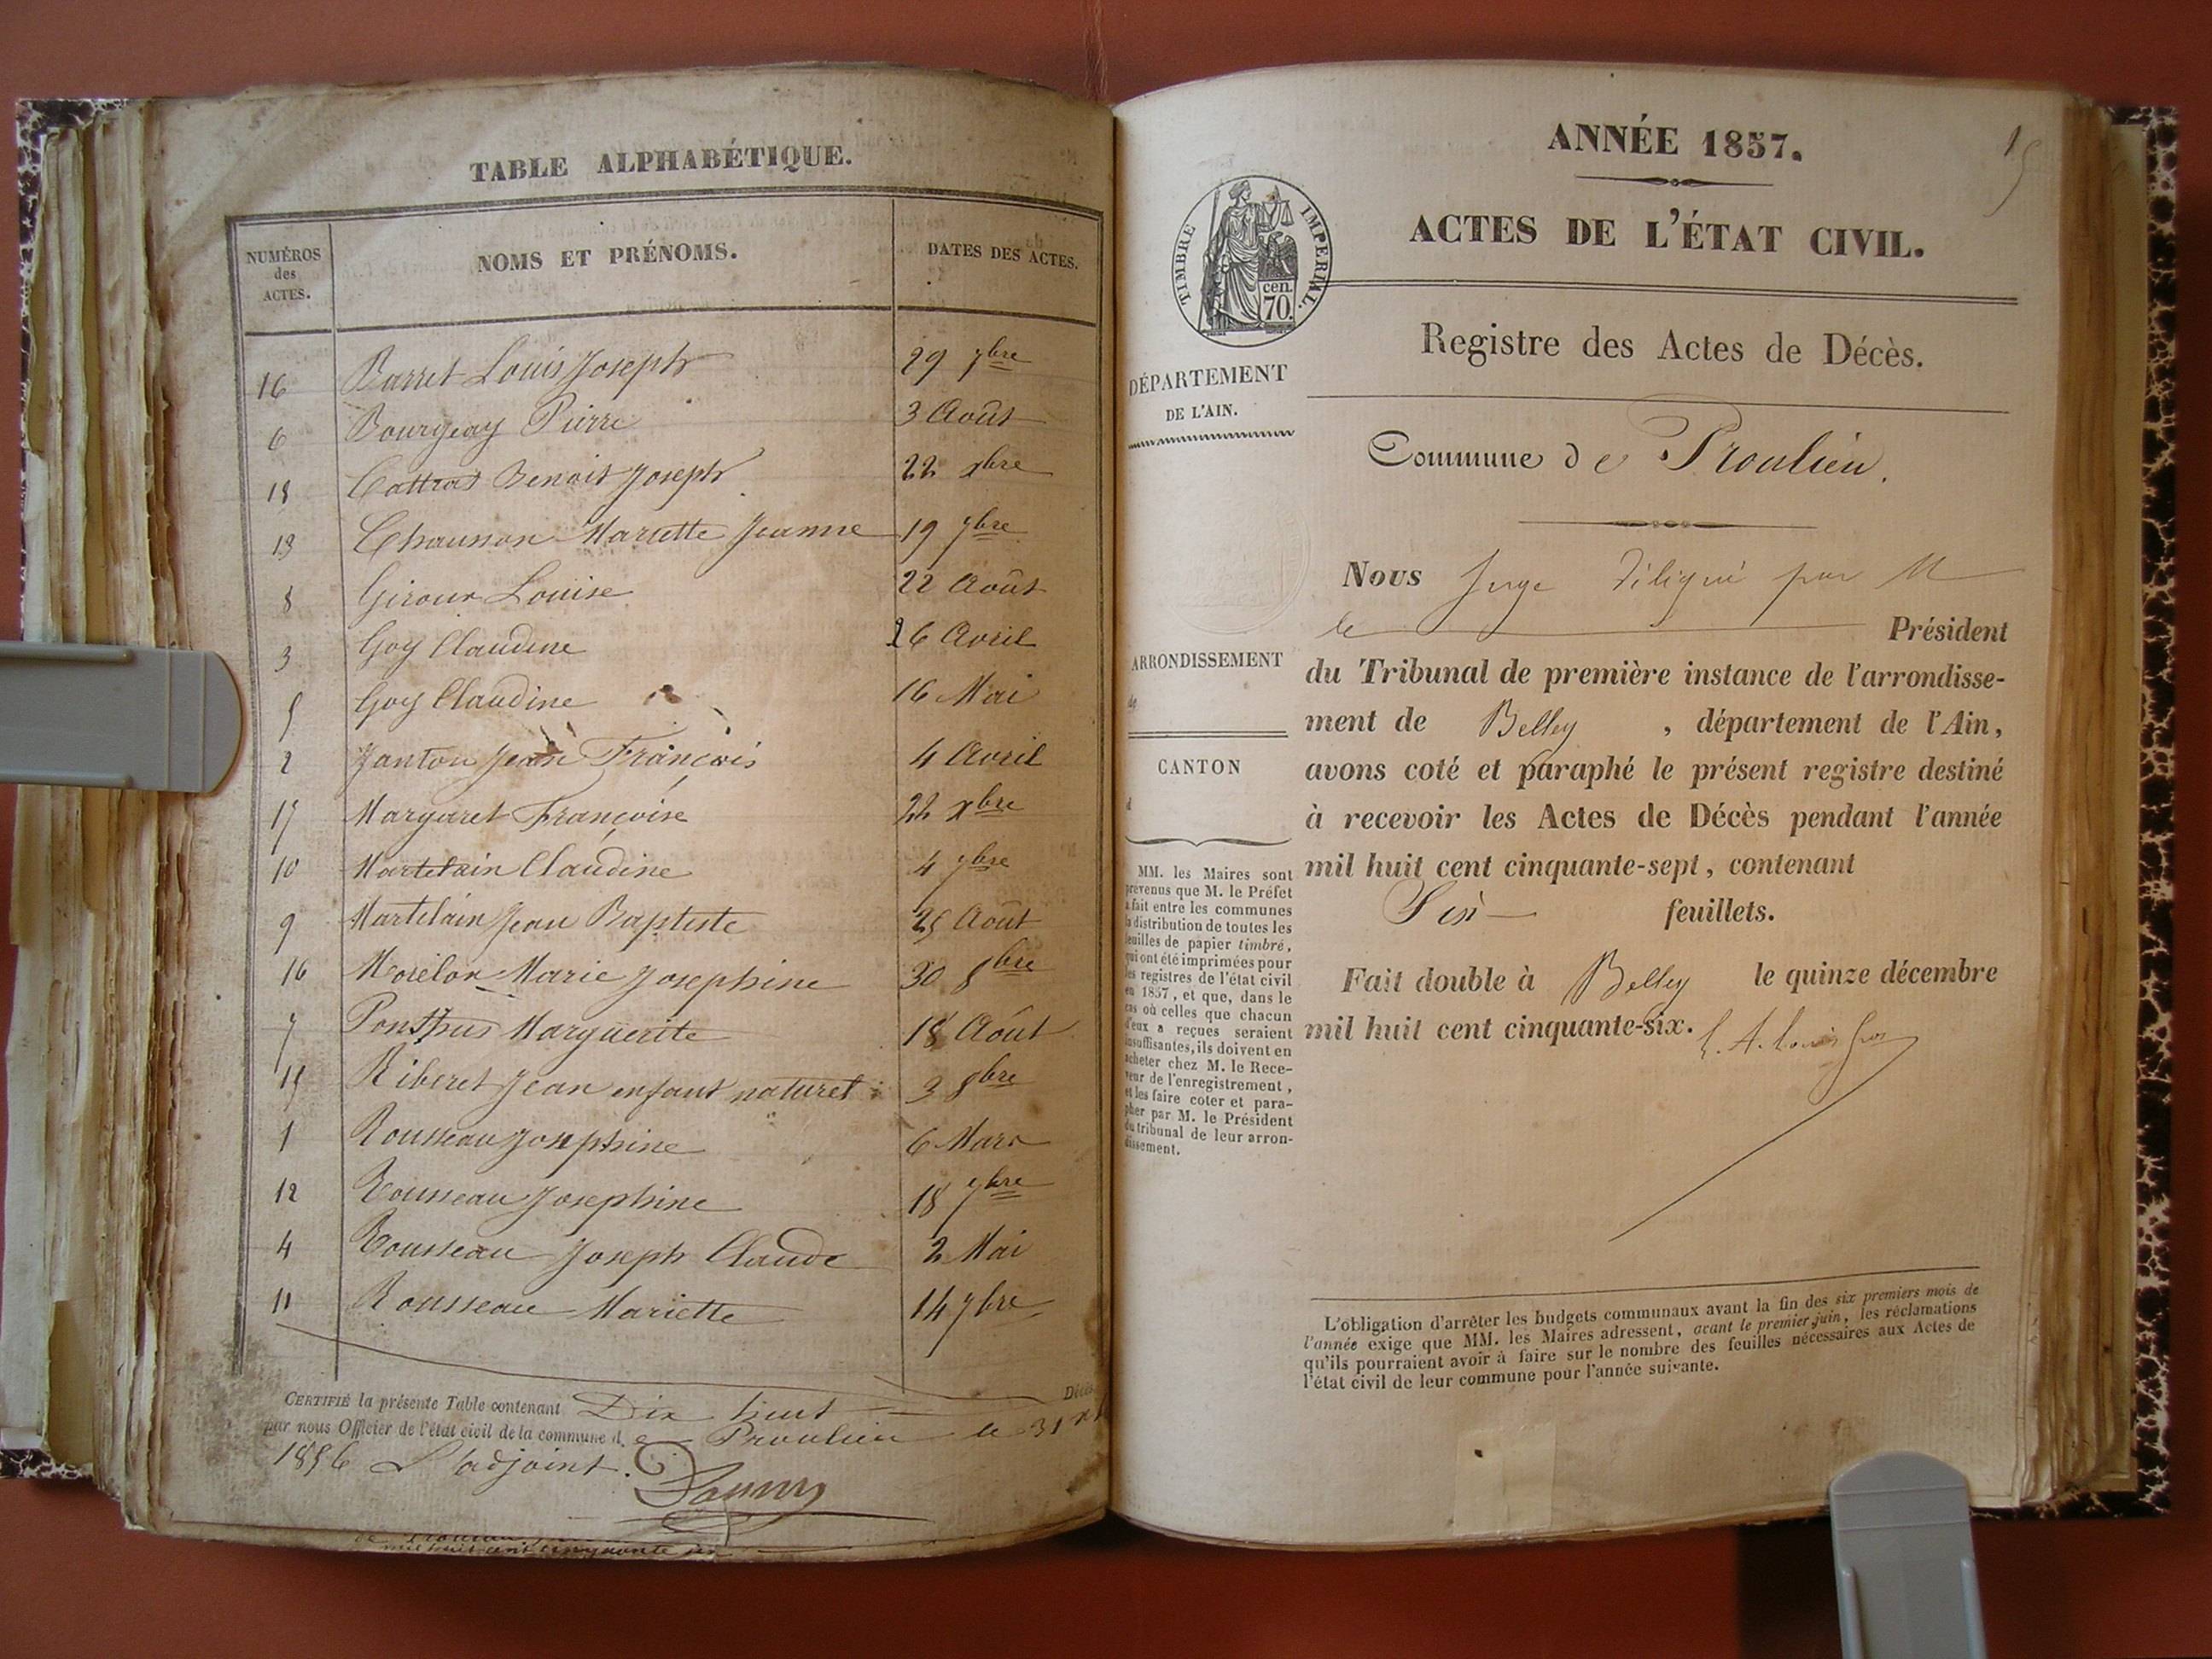 TABLE ALPHABÉTIQUE.
NUMÉROS
des
ACTES.
NOMS ET PRÉNOMS.
DATES DES ACTES.
16 Barret Louis Joseph 29 7bre
6 Bourgeay Pierre 3 Août
18 Benoit Joseph 22 xbre
13 Mariette Jeanne 19 7bre
8 Giroux Louise 22 Août
3 Goy Claudine 26 Avril
5 Goy Claudine 16 Mai
2 Janton Jean François 4 Avril
17 Margaret Françoise 22 xbre
10 Martelain Claudine 4 7bre
9 Martelain Jean Baptiste 25 Août
16 Morelon Marie Josephine 30 8bre
7 Ponthus Marguerite 18 Août
15 Riberet Jean enfant naturel 3 8bre
1 Rousseau Josephine 6 Mars
12 Rousseau Josephine 18 7bre
4 Rousseau Joseph Claude 2 Mai
11 Rousseau Mariette 14 7bre
CERTIFIÉ la présente Table contenant Dix huit Décès
par nous Officier de l'état civil de la commune de Proulieu le 31 x
1856 L'adjoint.
mil huit cent cinquante six
15
ANNÉE 1857.
ACTES DE L'ÉTAT CIVIL.
TIMBRE IMPERIAL.
cen.
70.
Registre des Actes de Décès.
DÉPARTEMENT
DE L'AIN.
Commune de Proulieu.
Nous Juge délégué par M
le Président
ARRONDISSEMENT
de
CANTON
d
du Tribunal de première instance de l'arrondisse-
ment de Belley , département de l'Ain,
avons coté et paraphé le présent registre destiné
à recevoir les Actes de Décès pendant l'année
mil huit cent cinquante-sept, contenant
Six feuillets.
Fait double à Belley le quinze décembre
mil huit cent cinquante-six.
MM. les Maires sont
prévenus que M. le Préfet
a fait entre les communes
la distribution de toutes les
feuilles de papier timbré,
qui ont été imprimées pour
les registres de l'état civil
en 1857, et que, dans le
cas où celles que chacun
d'eux a reçues seraient
insuffisantes, ils doivent en
acheter chez M. le Rece-
veur de l'enregistrement,
et les faire coter et para-
pher par M. le Président
du tribunal de leur arron-
dissement.
L'obligation d'arrêter les budgets communaux avant la fin des six premiers mois de
l'année exige que MM. les Maires adressent, avant le premier juin, les réclamations
qu'ils pourraient avoir à faire sur le nombre des feuilles nécessaires aux Actes de
l'état civil de leur commune pour l'année suivante.